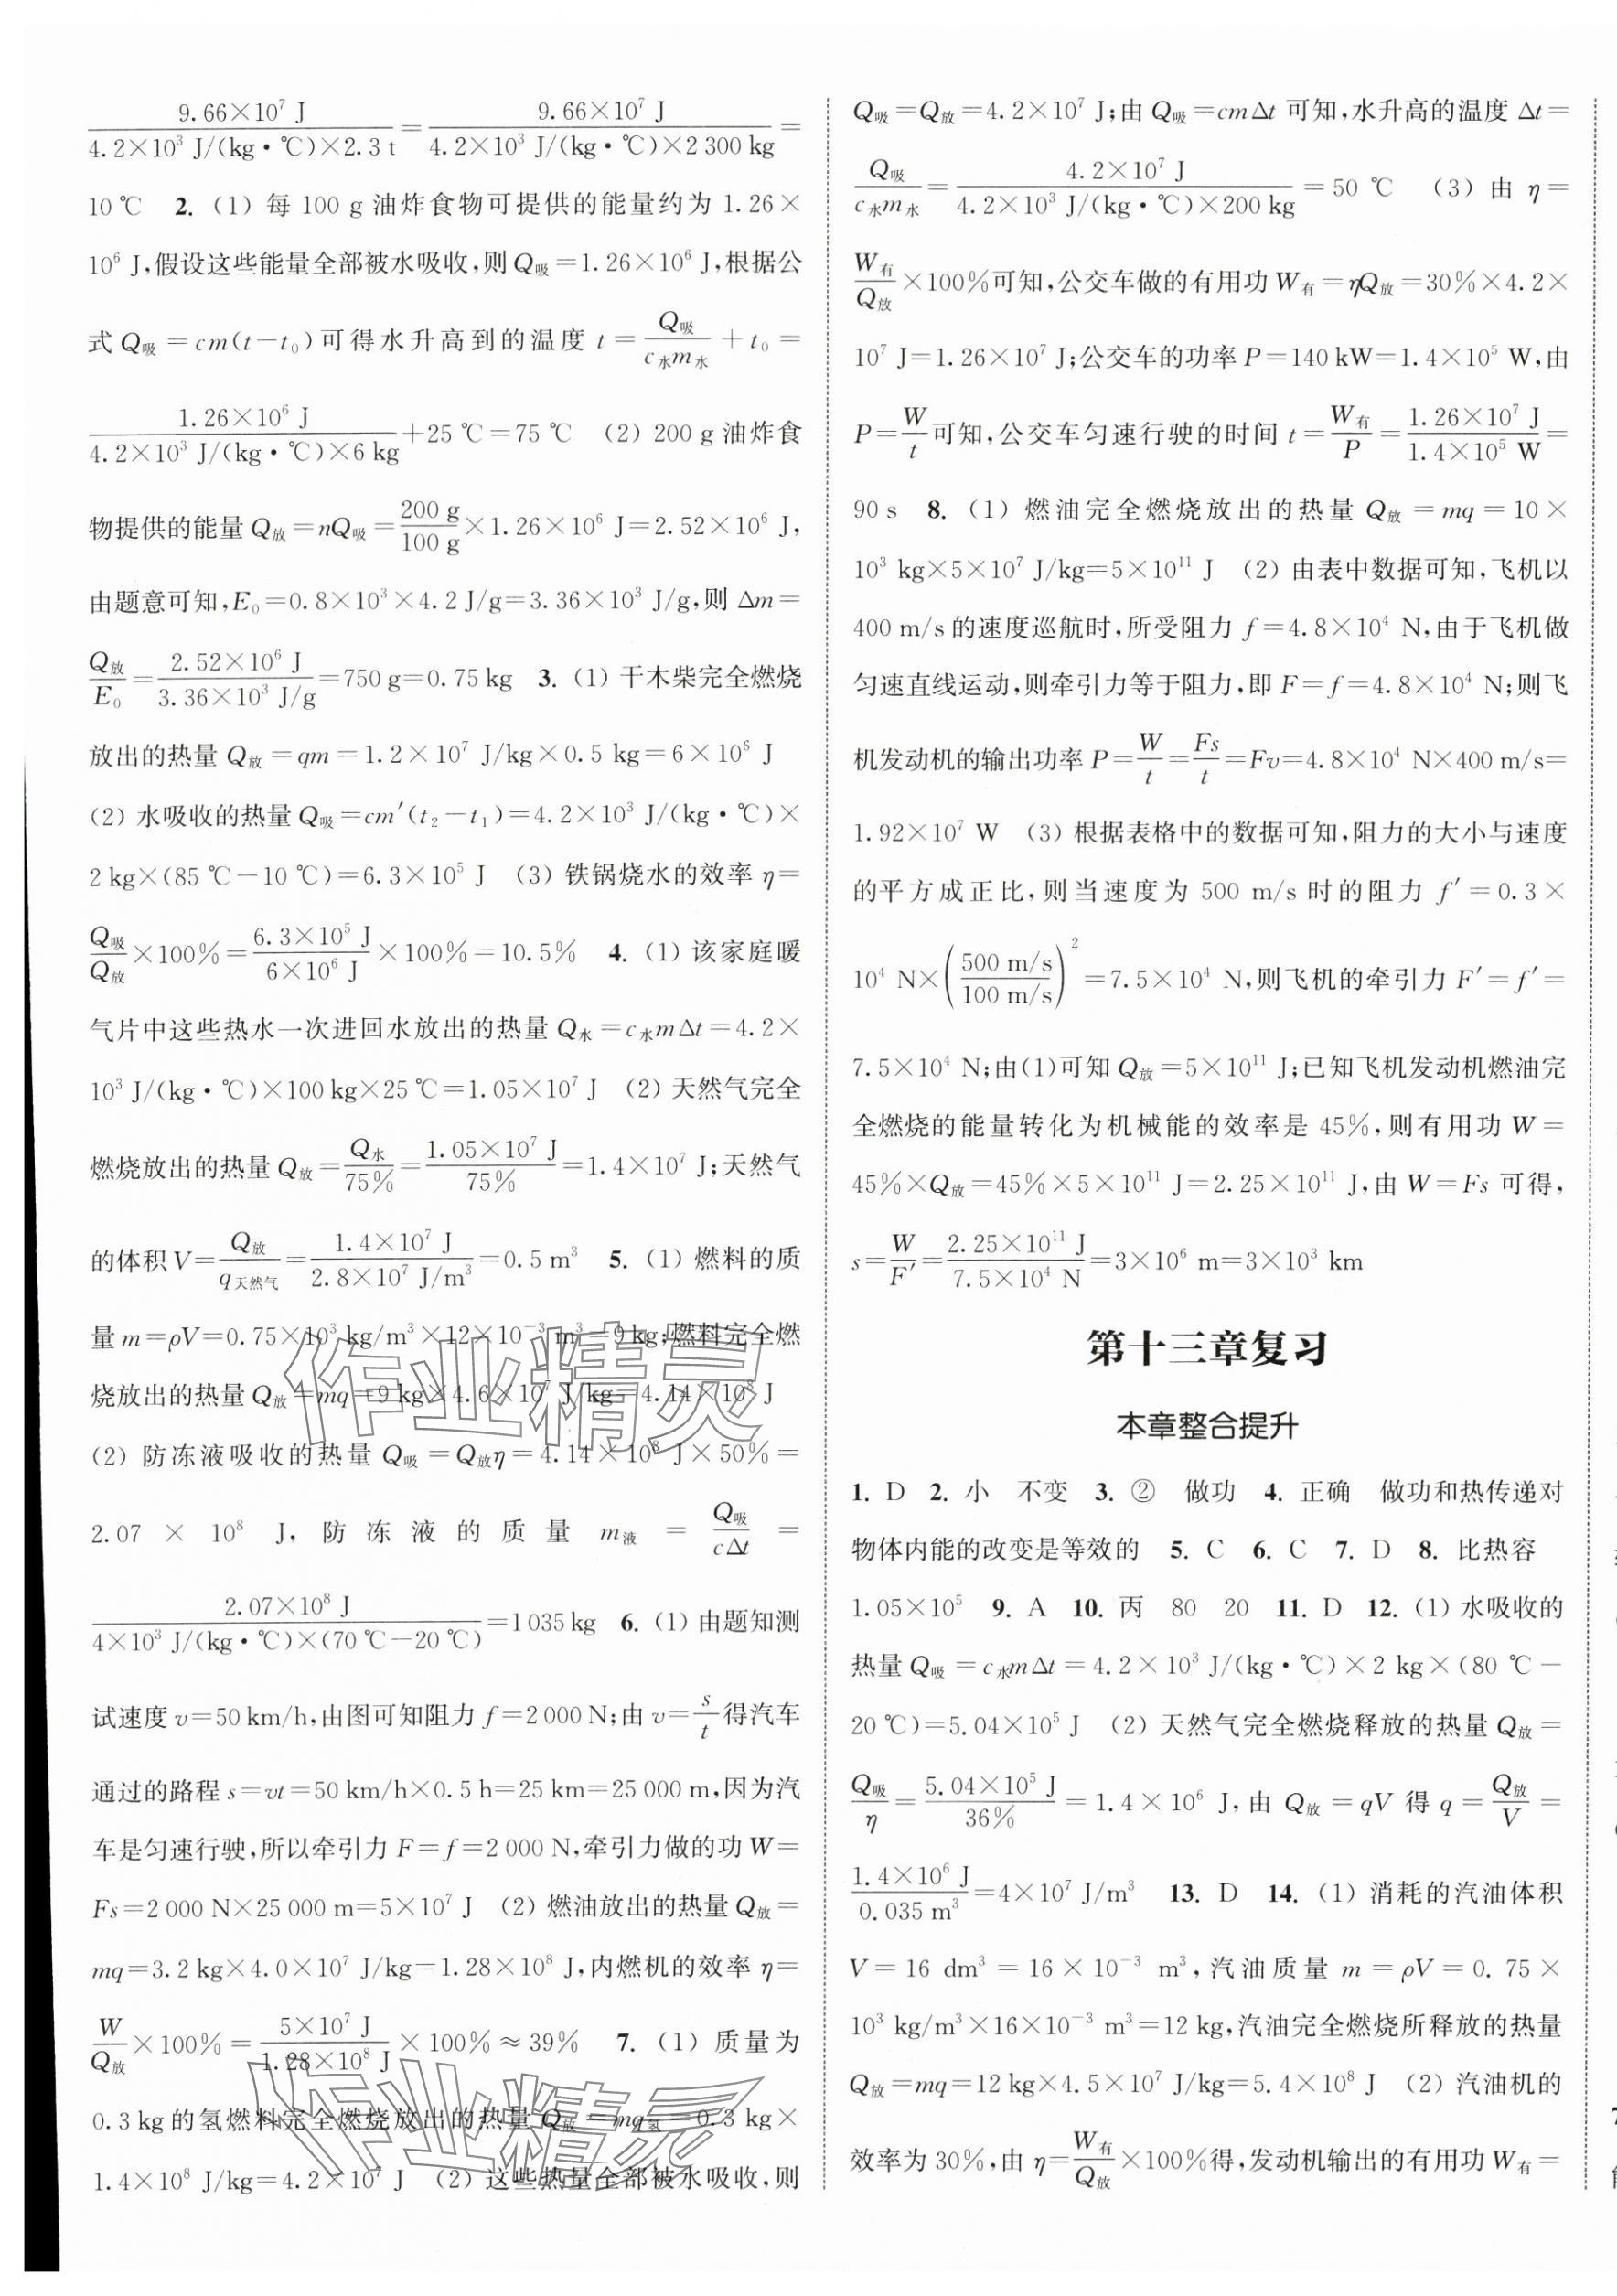 9.66×10⁷ J/4.2×10³ J/(kg·℃)×2.3 t=9.66×10⁷ J/4.2×10³ J/(kg·℃)×2 300 kg=
10 ℃ 2. (1) 每 100 g 油炸食物可提供的能量约为 1.26×
10⁶ J,假设这些能量全部被水吸收,则Q吸=1.26×10⁶ J,根据公
式 Q吸=cm(t-t₀)可得水升高到的温度 t=Q吸/c水m水+t₀=
1.26×10⁶ J/4.2×10³ J/(kg·℃)×6 kg+25 ℃=75 ℃ (2) 200 g 油炸食
物提供的能量 Q放=nQ吸=200 g/100 g×1.26×10⁶ J=2.52×10⁶ J,
由题意可知,E₀=0.8×10³×4.2 J/g=3.36×10³ J/g,则 Δm=
Q放/E₀=2.52×10⁶ J/3.36×10³ J/g=750 g=0.75 kg 3. (1) 干木柴完全燃烧
放出的热量 Q放=qm=1.2×10⁷ J/kg×0.5 kg=6×10⁶ J
(2) 水吸收的热量 Q吸=cm′(t₂-t₁)=4.2×10³ J/(kg·℃)×
2 kg×(85 ℃-10 ℃)=6.3×10⁵ J (3) 铁锅烧水的效率 η=
Q吸/Q放×100%=6.3×10⁵ J/6×10⁶ J×100%=10.5% 4. (1) 该家庭暖
气片中这些热水一次进回水放出的热量 Q水=c水mΔt=4.2×
10³ J/(kg·℃)×100 kg×25 ℃=1.05×10⁷ J (2) 天然气完全
燃烧放出的热量 Q放=Q水/75%=1.05×10⁷ J/75%=1.4×10⁷ J;天然气
的体积 V=Q放/q天然气=1.4×10⁷ J/2.8×10⁷ J/m³=0.5 m³ 5. (1) 燃料的质
量 m=ρV=0.75×10³ kg/m³×12×10⁻³ m³=9 kg;燃料完全燃
烧放出的热量 Q放=mq=9 kg×4.6×10⁷ J/kg=4.14×10⁸ J
(2) 防冻液吸收的热量 Q吸=Q放η=4.14×10⁸ J×50%=
2.07×10⁸ J,防冻液的质量 m液=Q吸/cΔt=
2.07×10⁸ J/4×10³ J/(kg·℃)×(70 ℃-20 ℃)=1 035 kg 6. (1) 由题知测
试速度 v=50 km/h,由图可知阻力 f=2 000 N;由 v=s/t得汽车
通过的路程 s=vt=50 km/h×0.5 h=25 km=25 000 m,因为汽
车是匀速行驶,所以牵引力 F=f=2 000 N,牵引力做的功 W=
Fs=2 000 N×25 000 m=5×10⁷ J (2) 燃油放出的热量 Q放=
mq=3.2 kg×4.0×10⁷ J/kg=1.28×10⁸ J,内燃机的效率 η=
W/Q放×100%=5×10⁷ J/1.28×10⁸ J×100%≈39% 7. (1) 质量为
0.3 kg的氢燃料完全燃烧放出的热量 Q放=mq氢=0.3 kg×
1.4×10⁸ J/kg=4.2×10⁷ J (2) 这些热量全部被水吸收,则
Q吸=Q放=4.2×10⁷ J;由 Q吸=cmΔt 可知,水升高的温度 Δt=
Q吸/c水m水=4.2×10⁷ J/4.2×10³ J/(kg·℃)×200 kg=50 ℃ (3) 由 η=
W有/Q放×100%可知,公交车做的有用功 W有=ηQ放=30%×4.2×
10⁷ J=1.26×10⁷ J;公交车的功率 P=140 kW=1.4×10⁵ W,由
P=W/t可知,公交车匀速行驶的时间 t=W有/P=1.26×10⁷ J/1.4×10⁵ W=
90 s 8. (1) 燃油完全燃烧放出的热量 Q放=mq=10×
10³ kg×5×10⁷ J/kg=5×10¹¹ J (2) 由表中数据可知,飞机以
400 m/s的速度巡航时,所受阻力 f=4.8×10⁴ N,由于飞机做
匀速直线运动,则牵引力等于阻力,即 F=f=4.8×10⁴ N;则飞
机发动机的输出功率 P=W/t=Fs/t=Fv=4.8×10⁴ N×400 m/s=
1.92×10⁷ W (3) 根据表格中的数据可知,阻力的大小与速度
的平方成正比,则当速度为 500 m/s 时的阻力 f′=0.3×
10⁴ N×(500 m/s/100 m/s)²=7.5×10⁴ N,则飞机的牵引力 F′=f′=
7.5×10⁴ N;由(1)可知 Q放=5×10¹¹ J;已知飞机发动机燃油完
全燃烧的能量转化为机械能的效率是 45%,则有用功 W=
45%×Q放=45%×5×10¹¹ J=2.25×10¹¹ J,由 W=Fs 可得,
s=W/F′=2.25×10¹¹ J/7.5×10⁴ N=3×10⁶ m=3×10³ km
第十三章复习
本章整合提升
1. D 2. 小 不变 3. ② 做功 4. 正确 做功和热传递对
物体内能的改变是等效的 5. C 6. C 7. D 8. 比热容
1.05×10⁵ 9. A 10. 丙 80 20 11. D 12. (1) 水吸收的
热量 Q吸=c水mΔt=4.2×10³ J/(kg·℃)×2 kg×(80 ℃-
20 ℃)=5.04×10⁵ J (2) 天然气完全燃烧释放的热量 Q放=
Q吸/η=5.04×10⁵ J/36%=1.4×10⁶ J,由 Q放=qV 得 q=Q放/V=
1.4×10⁶ J/0.035 m³=4×10⁷ J/m³ 13. D 14. (1) 消耗的汽油体积
V=16 dm³=16×10⁻³ m³,汽油质量 m=ρV=0.75×
10³ kg/m³×16×10⁻³ m³=12 kg,汽油完全燃烧所释放的热量
Q放=mq=12 kg×4.5×10⁷ J/kg=5.4×10⁸ J (2) 汽油机的
效率为 30%,由 η=W有/Q放×100%得,发动机输出的有用功 W有=
作业精灵
作业精灵